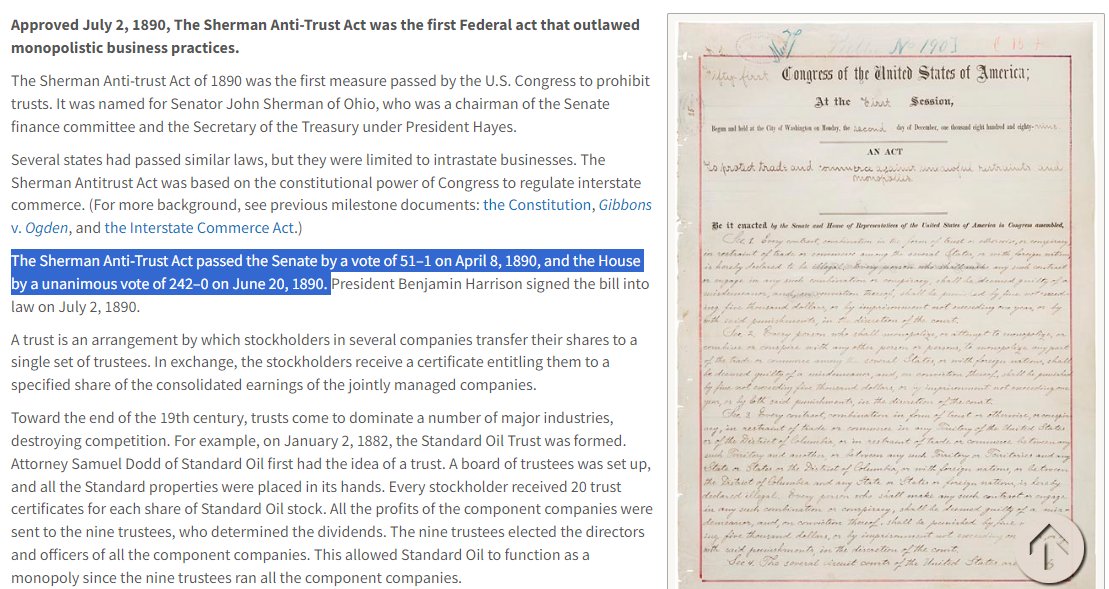 Approved July 2, 1890, The Sherman Anti-Trust Act was the first Federal act that outlawed
monopolistic business practices.
The Sherman Anti-trust Act of 1890 was the first measure passed by the U.S. Congress to prohibit
trusts. It was named for Senator John Sherman of Ohio, who was a chairman of the Senate
finance committee and the Secretary of the Treasury under President Hayes.
Several states had passed similar laws, but they were limited to intrastate businesses. The
Sherman Antitrust Act was based on the constitutional power of Congress to regulate interstate
commerce. (For more background, see previous milestone documents: the Constitution, Gibbons
v. Ogden, and the Interstate Commerce Act.)
The Sherman Anti-Trust Act passed the Senate by a vote of 51–1 on April 8, 1890, and the House
by a unanimous vote of 242–0 on June 20, 1890. President Benjamin Harrison signed the bill into
law on July 2, 1890.
A trust is an arrangement by which stockholders in several companies transfer their shares to a
single set of trustees. In exchange, the stockholders receive a certificate entitling them to a
specified share of the consolidated earnings of the jointly managed companies.
Toward the end of the 19th century, trusts come to dominate a number of major industries,
destroying competition. For example, on January 2, 1882, the Standard Oil Trust was formed.
Attorney Samuel Dodd of Standard Oil first had the idea of a trust. A board of trustees was set up,
and all the Standard properties were placed in its hands. Every stockholder received 20 trust
certificates for each share of Standard Oil stock. All the profits of the component companies were
sent to the nine trustees, who determined the dividends. The nine trustees elected the directors
and officers of all the component companies. This allowed Standard Oil to function as a
monopoly since the nine trustees ran all the component companies.
Fifty first Congress of the United States of America;
At the First Session,
Begun and held at the City of Washington on Monday, the second day of December, one thousand eight hundred and eighty-nine.
AN ACT
To protect trade and commerce against unlawful restraints and
monopolies.
Be it enacted by the Senate and House of Representatives of the United States of America in Congress assembled,
Sec. 1. Every contract, combination in the form of trust or otherwise, or conspiracy,
in restraint of trade or commerce among the several States, or with foreign nations,
is hereby declared to be illegal. Every person who shall make any such contract
or engage in any such combination or conspiracy, shall be deemed guilty of a
misdemeanor, and, on conviction thereof, shall be punished by fine not exceed-
ing five thousand dollars, or by imprisonment not exceeding one year, or by
both said punishments, in the discretion of the court.
Sec. 2. Every person who shall monopolize, or attempt to monopolize, or
combine or conspire with any other person or persons, to monopolize any part
of the trade or commerce among the several States, or with foreign nations, shall
be deemed guilty of a misdemeanor, and, on conviction thereof, shall be punished
by fine not exceeding five thousand dollars, or by imprisonment not exceeding one
year, or by both said punishments, in the discretion of the court.
Sec. 3. Every contract, combination in form of trust or otherwise, or conspir-
acy, in restraint of trade or commerce in any Territory of the United States
or of the District of Columbia, or in restraint of trade or commerce between any
such Territory and another, or between any such Territory or Territories and any
State or States or the District of Columbia, or with foreign nations, or between
the District of Columbia and any State or States or foreign nations, is hereby
declared illegal. Every person who shall make any such contract or engage
in any such combination or conspiracy, shall be deemed guilty of a misde-
meanor, and, on conviction thereof, shall be punished by fine
ing five thousand dollars, or by imprisonment not exceeding on
both said punishments, in the discretion of the court.
Sec 4. The several circuit courts of the United States are